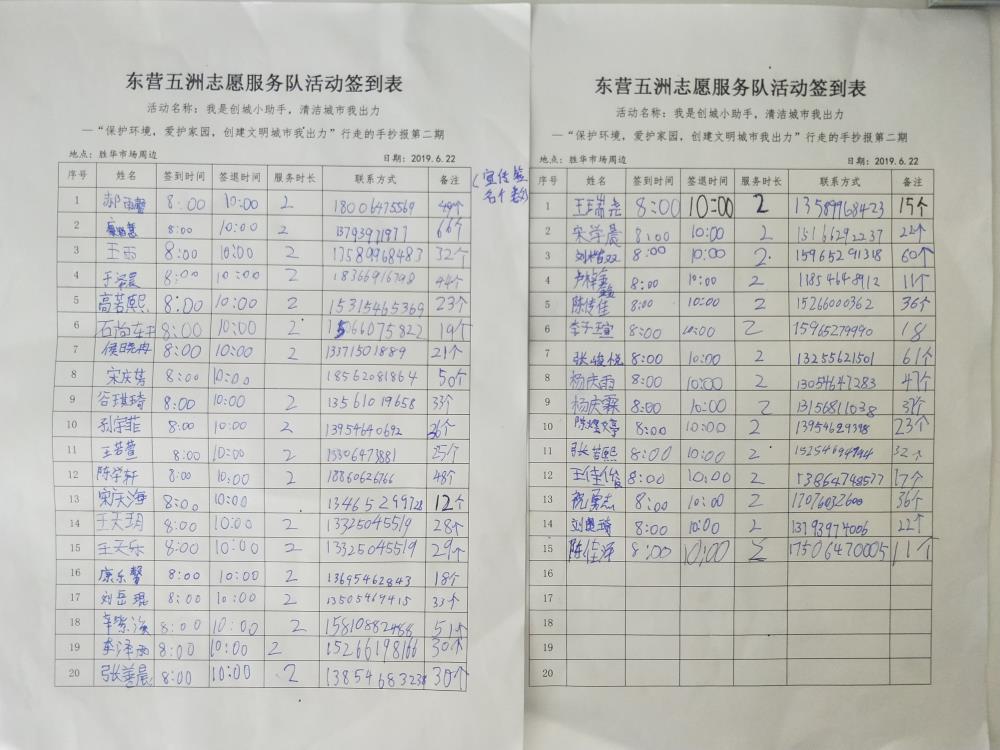 东营五洲志愿服务队活动签到表
活动名称：我是创城小助手，清洁城市我出力
—“保护环境，爱护家园，创建文明城市我出力”行走的手抄报第二期
地点：胜华市场周边 日期：2019.6.22
序号 姓名 签到时间 签退时间 服务时长 联系方式 备注 (宣传签名个数)
1 8:00 10:00 2 18006475569 49个
2 8:00 10:00 2 13793971977 66个
3 王雨 8:00 10:00 2 13589968483 32个
4 8:00 10:00 2 18366916798 44个
5 高若熙 8:00 10:00 2 15315465369 23个
6 8:00 10:00 2 15066075822 19个
7 侯晓冉 8:00 10:00 2 13371501889 21个
8 宋庆芳 8:00 10:00 18562081864 50个
9 谷琪琦 8:00 10:00 2 13561019658 33个
10 孙宇菲 8:00 10:00 2 13954640692 26个
11 王若萱 8:00 10:00 2 15306473881 25个
12 陈学轩 8:00 10:00 2 18860626766 48个
13 宋庆海 8:00 10:00 13465299728 12个
14 王天玥 8:00 10:00 2 13325045519 28个
15 王天乐 8:00 10:00 2 13325045519 29个
16 康乐馨 8:00 10:00 2 13695462843 18个
17 刘岳琨 8:00 10:00 2 13505469415 33个
18 8:00 10:00 2 15810882488 51个
19 李泽雨 8:00 10:00 2 15266198166 30个
20 张善晨 8:00 10:00 2 13854683238 30个
东营五洲志愿服务队活动签到表
活动名称：我是创城小助手，清洁城市我出力
—“保护环境，爱护家园，创建文明城市我出力”行走的手抄报第二期
地点：胜华市场周边 日期：2019.6.22
序号 姓名 签到时间 签退时间 服务时长 联系方式 备注
1 王瑞尧 8:00 10:00 2 13589968423 15个
2 宋学晨 8:00 10:00 2 15166292237 22个
3 8:00 10:00 2 15965291318 60个
4 8:00 10:00 2 11854648912 11个
5 陈传佳 8:00 10:00 2 15266000362 36个
6 李子宣 8:00 10:00 2 15965279990 18
7 张峻悦 8:00 10:00 2 13255621501 61个
8 杨庆雨 8:00 10:00 2 13054647283 47个
9 杨庆霖 8:00 10:00 2 13156811038 37个
10 陈煜婷 8:00 10:00 2 13954629398 23个
11 张若熙 8:00 10:00 2 15254694744 32个
12 王佳俊 8:00 10:00 2 13864798577 17个
13 祝勇志 8:00 10:00 2 17076032600 36个
14 8:00 10:00 2 13793974006 22个
15 陈佳泽 8:00 10:00 2 17506470005 11个
16
17
18
19
20